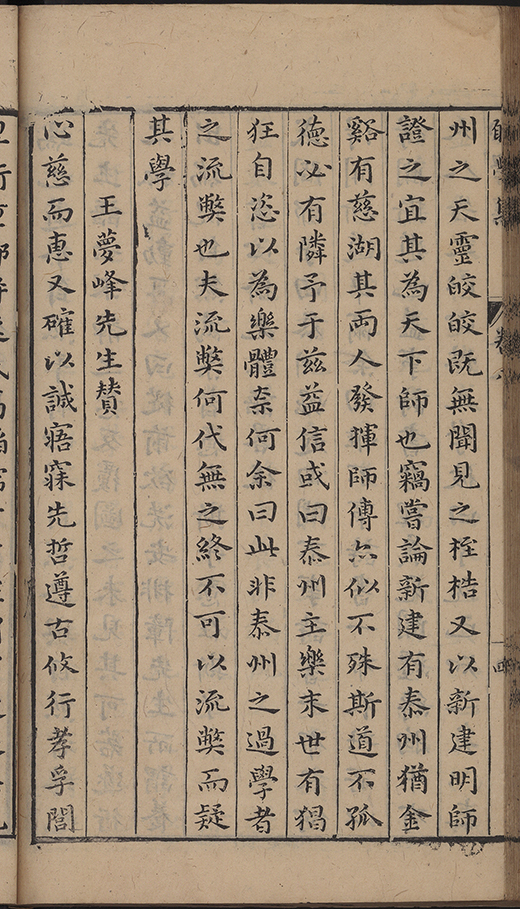 州之天靈皎皎既無聞見之桎梏又以新建明師
證之宜其為天下師也竊嘗論新建有泰州猶金
谿有慈湖其兩人發揮師傳亦似不殊斯道不孤
德必有隣予于茲益信或曰泰州主樂末世有猖
狂自恣以為樂體柰何余曰此非泰州之過學者
之流獘也夫流獘何代無之終不可以流獘而疑
其學
王夢峰先生贊
心慈而惠又確以誠寤寐先哲遵古攸行孝孚閭